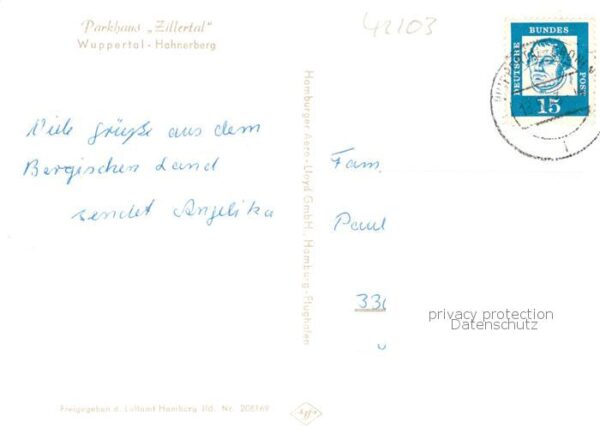 Parkhaus „Zillertal"
Wuppertal - Hahnerberg
42103
DEUTSCHE BUNDES POST
15
Viele Grüße aus dem
Bergischen Land
sendet Angelika
Hamburger Aero-Lloyd GmbH., Hamburg-Flughafen
Fam.
Paul
privacy protection
Datenschutz
Freigegeben d. Luftamt Hamburg lfd. Nr.